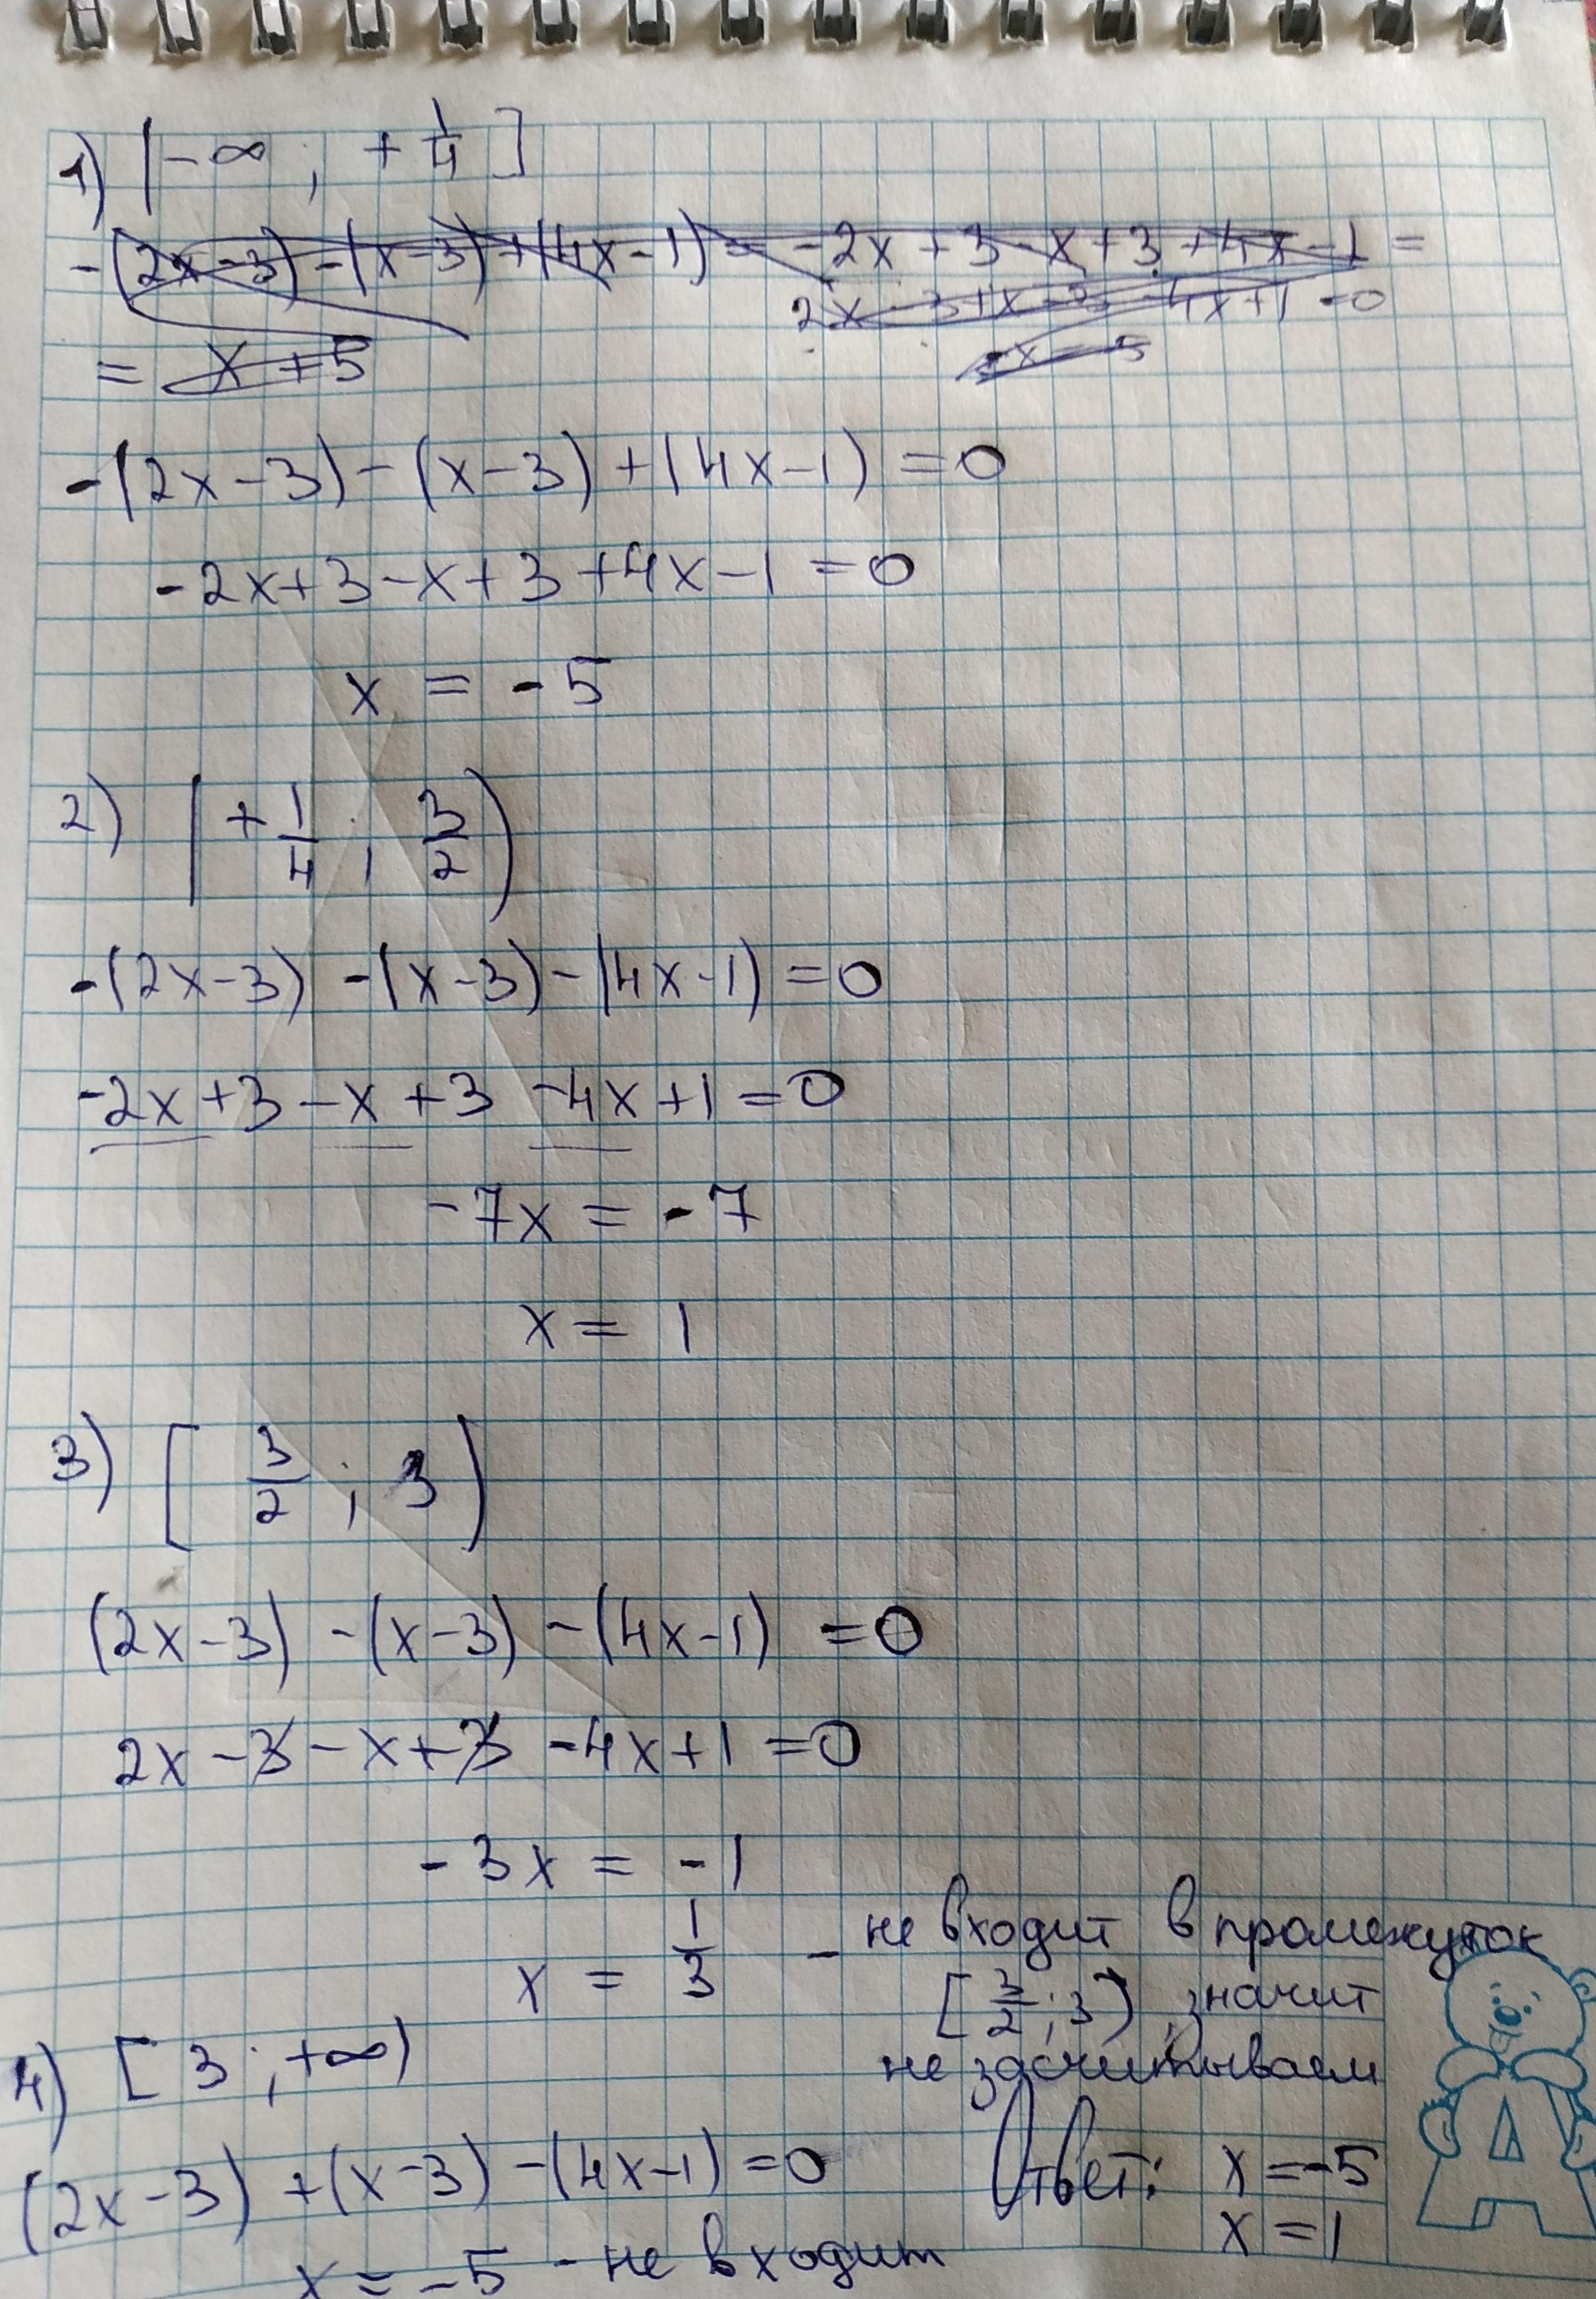 1) (-∞ ; + 1/4 ]
-(2x-3) -(x-3) +(4x-1) = -2x+3-x+3+4x-1 =
2x-3+x-3-4x+1=0
= x+5
-x=5
-(2x-3)-(x-3)+(4x-1)=0
-2x+3-x+3+4x-1=0
x = -5
2) (+1/4 ; 3/2)
-(2x-3) -(x-3)-(4x-1)=0
-2x+3-x+3-4x+1=0
-7x = -7
x = 1
3) [3/2 ; 3)
(2x-3) -(x-3) -(4x-1) =0
2x-3-x+3-4x+1=0
-3x = -1
x = 1/3 - не входит в промежуток
[3/2 ; 3), значит
не засчитываем
4) [3 ; +∞)
(2x-3) +(x-3) -(4x-1)=0
x = -5 - не входит
Ответ: x=-5
x=1